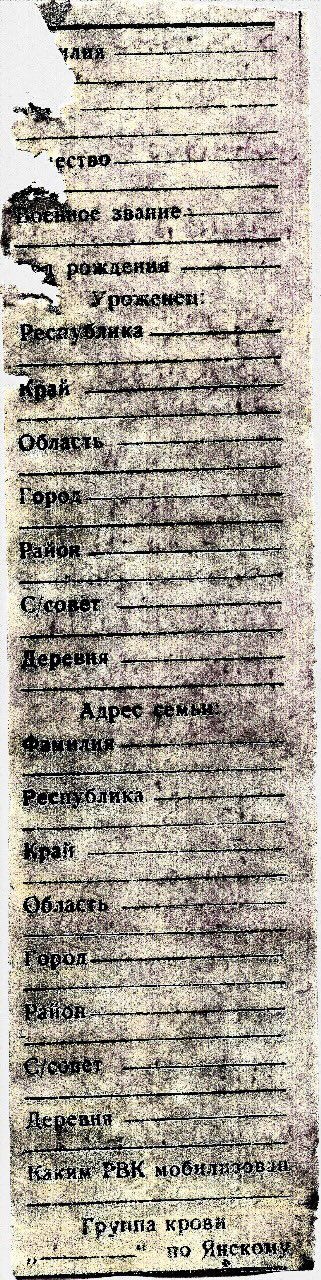 илия
ество
Военное звание
д рождения
Уроженец:
Республика
Край
Область
Город
Район
С/совет
Деревня
Адрес семьи:
Фамилия
Республика
Край
Область
Город
Район
С/совет
Деревня
Каким РВК мобилизован
Группа крови
„ “ по Янскому